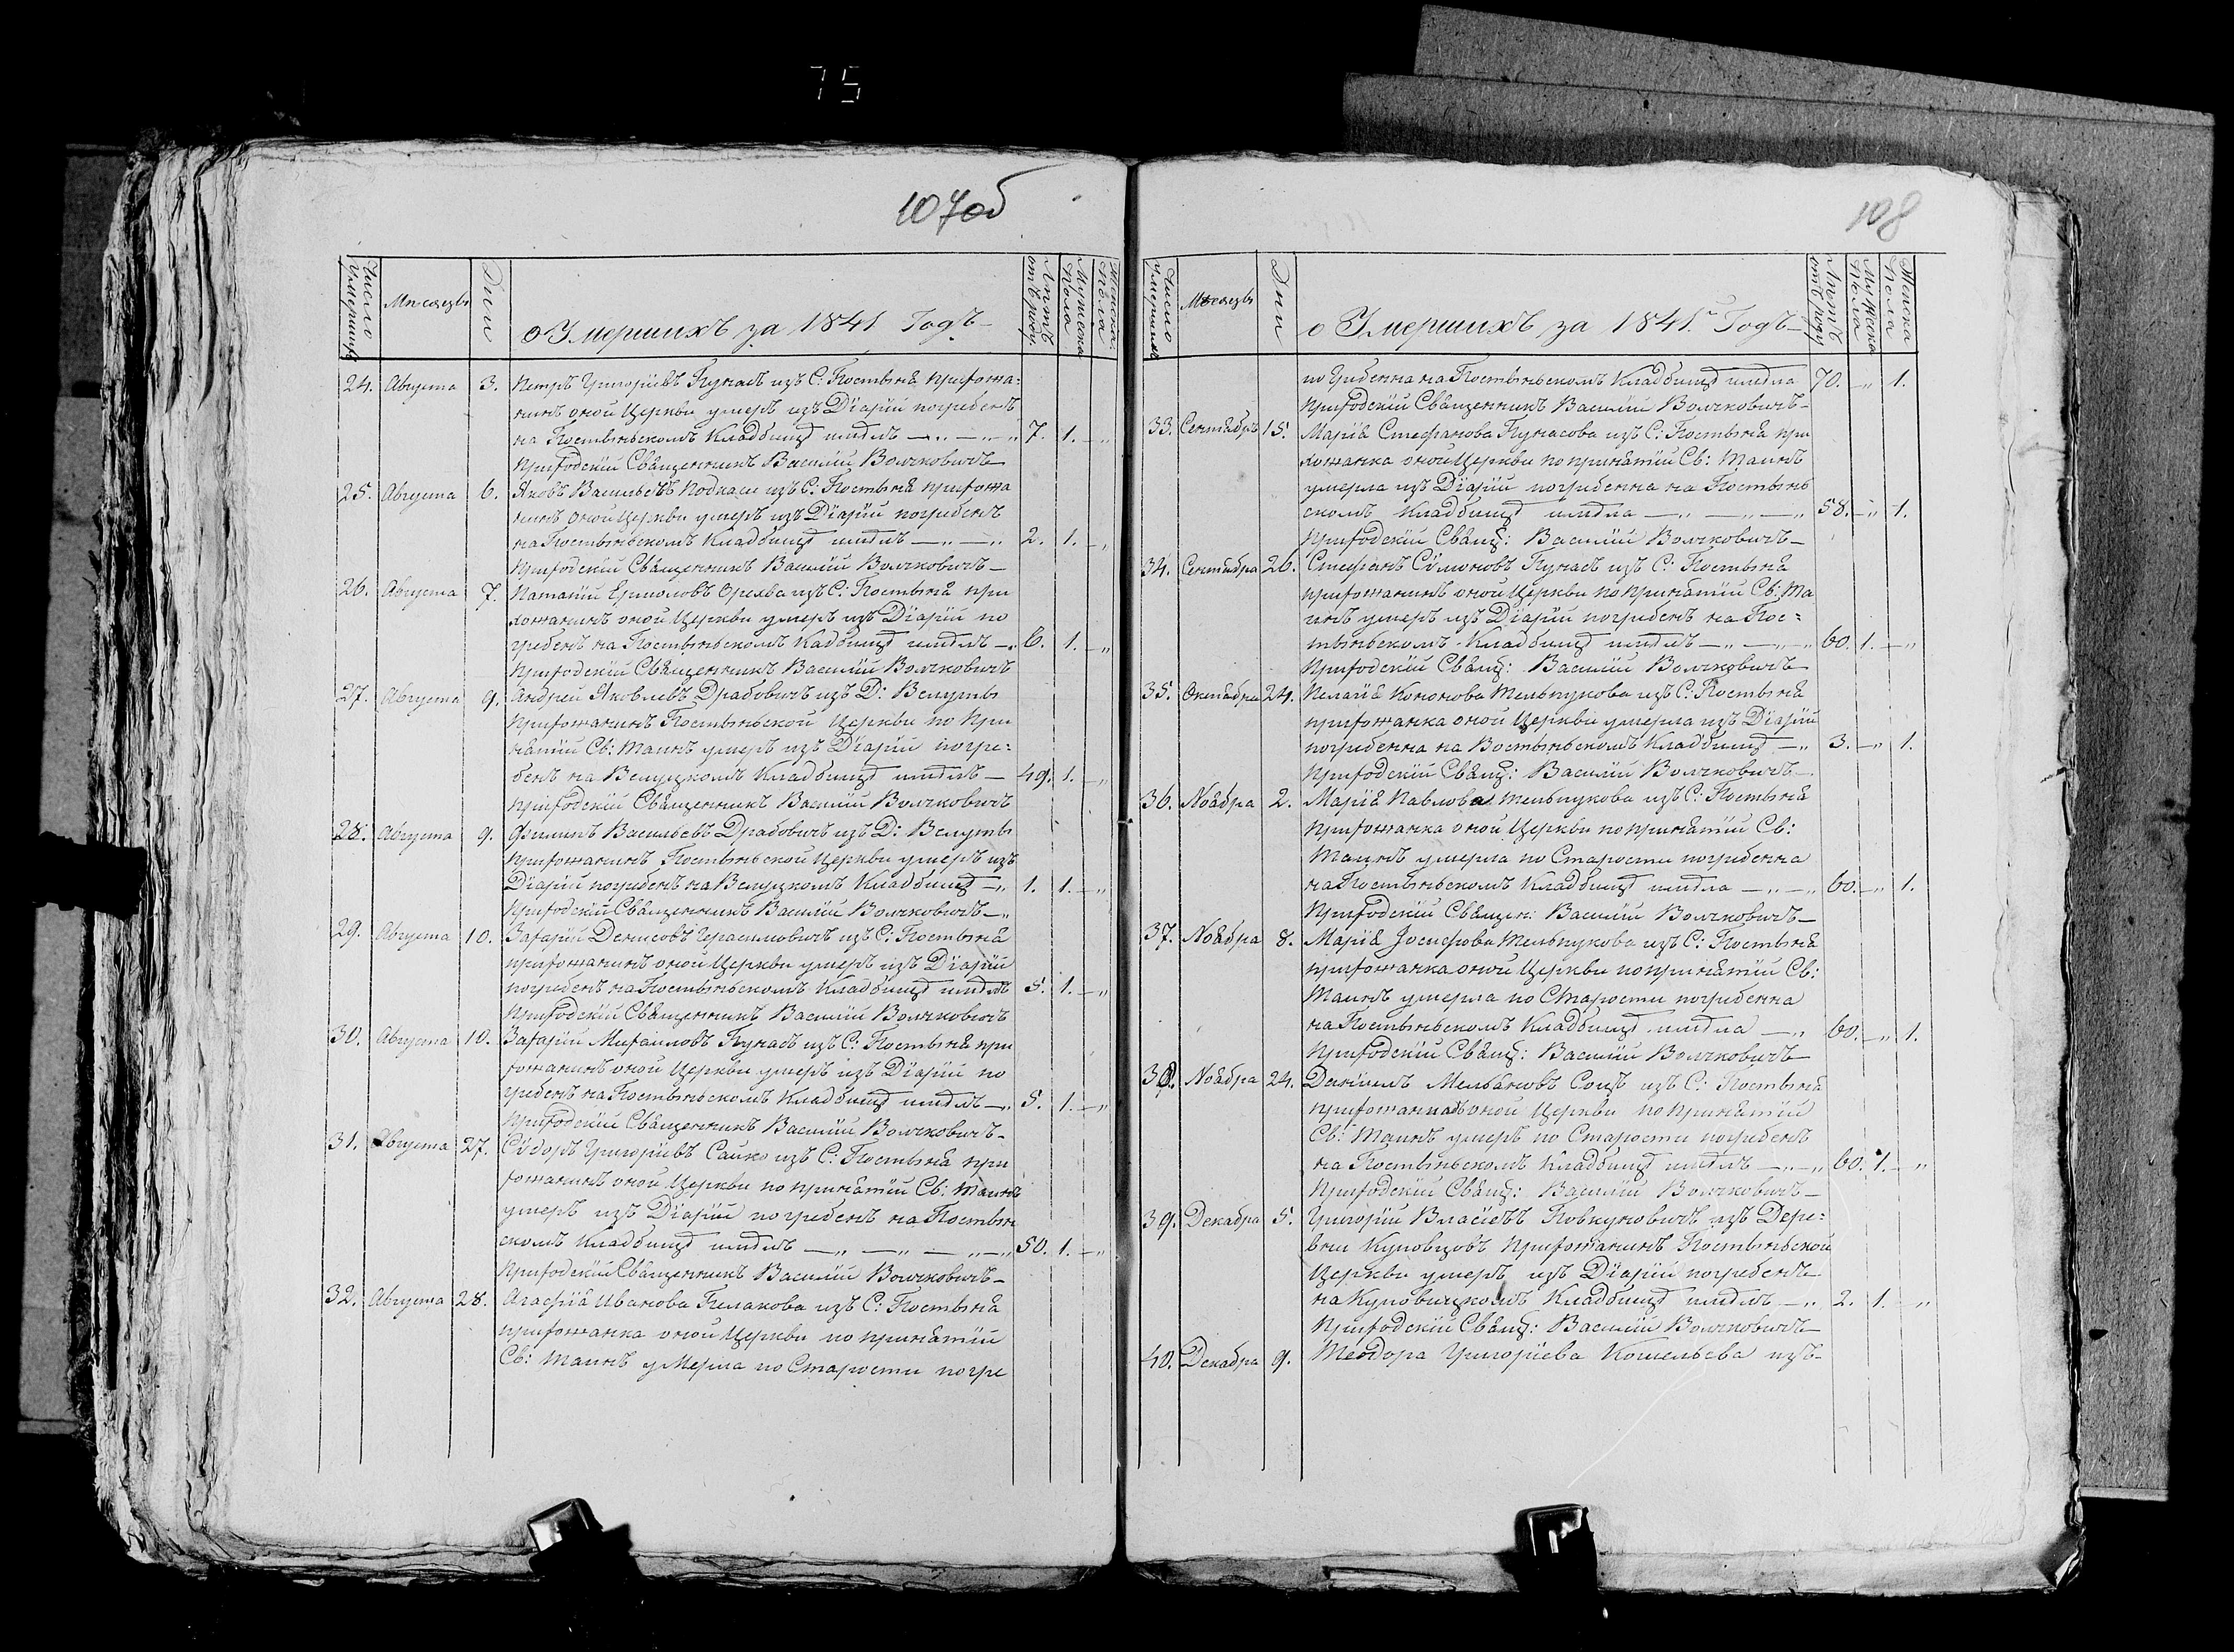 75
107об
Число умершихъ
Мѣсяцъ
Дни
о Умершихъ за 1841 Годъ
Лѣтъ отъ роду
Мужеска Пола
Женска Пола
24. Августа 3. Петръ Григоріевъ Кунасъ изъ С: Гостыня прихожа:
нинъ оной Церкви умеръ изъ Діаріи погребенъ
на Гостыньскомъ Кладбищѣ имѣлъ 7. 1. „
Приходскій Священникъ Василій Волчковичъ
25. Августа 6. Яковъ Васильевъ изъ С: Гостыня прихожа
нинъ оной Церкви умеръ изъ Діаріи погребенъ
на Гостыньскомъ Кладбищѣ имѣлъ 2. 1. „
Приходскій Священникъ Василій Волчковичъ
26. Августа 7. изъ С: Гостыня при
хожанинъ оной Церкви умеръ изъ Діаріи по
гребенъ на Гостыньскомъ Кадбищѣ имѣлъ 6. 1. „
Приходскій Священникъ Василій Волчковичъ
27. Августа 9. Андрей Яковлевъ Драбовичъ изъ Д: Велуты
Прихожанинъ Гостыньской Церкви по При
нятіи Св: Таинъ умеръ изъ Діаріи погре:
бенъ на Велуцкомъ Кладбищѣ имѣлъ 49. 1. „
Приходскій Священникъ Василій Волчковичъ
28. Августа 9. Филипъ Васильевъ Драбовичъ изъ Д: Велуты
Прихожанинъ Гостыньской Церкви умеръ изъ
Діаріи погребенъ на Велуцкомъ Кладбищѣ 1. 1. „
Приходскій Священникъ Василій Волчковичъ
29. Августа 10. Захарій Денисовъ Герасимовичъ изъ С: Гостыня
прихожанинъ оной Церкви умеръ изъ Діаріи
погребенъ на Гостыньскомъ Кладбищѣ имѣлъ 5. 1. „
Приходскій Священникъ Василій Волчковичъ
30. Августа 10. Захарій Михаиловъ Кунасъ изъ С: Гостыня при
хожанинъ оной Церкви умеръ изъ Діаріи по
гребенъ на Гостыньскомъ Кладбищѣ имѣлъ 5. 1. „
Приходскій Священникъ Василій Волчковичъ
31. Августа 27. Сѵдоръ Григоріевъ Сайко изъ С: Гостыня при
хожанинъ оной Церкви по принятіи Св: Таинъ
умеръ изъ Діаріи погребенъ на Гостын
скомъ Кладбищѣ имѣлъ 50. 1. „
Приходскій Священникъ Василій Волчковичъ
32. Августа 28. Агафія Иванова изъ С: Гостыня
прихожанка оной Церкви по принятіи
Св: Таинъ умерла по Старости погре
108
Число умершихъ
Мѣсяцъ
Дни
о Умершихъ за 1841. Годъ
Лѣтъ отъ роду
Мужеска Пола
Женска Пола
погребенна на Гостыньскомъ Кладбищѣ имѣла 70. „ 1.
Приходскій Священникъ Василій Волчковичъ
33. Сентябръ 15. Марія Стефанова Кунасова изъ С: Гостыня при
хожанка оной Церкви по принятіи Св: Таинъ
умерла изъ Діаріи погребенна на Гостынь
скомъ Кладбищѣ имѣла 58. „ 1.
Приходскій Свящ: Василій Волчковичъ
34. Сентябра 26. Стефанъ Сѵмоновъ Кунасъ изъ С: Гостыня
прихожанинъ оной Церкви по принятіи Св: Та
инъ умеръ изъ Діаріи погребенъ на Гос:
тыньскомъ Кладбищѣ имѣлъ 60. 1. „
Приходскій Свящ: Василій Волчковичъ
35. Октября 24. Пелагія Кононова Мельнукова изъ С: Гостыня
прихожанка оной Церкви умерла изъ Діаріи
погребенна на Гостыньскомъ Кладбищѣ 3. „ 1.
Приходскій Свящ: Василій Волчковичъ
36. Ноября 2. Марія Павлова Мельнукова изъ С: Гостыня
Прихожанка оной Церкви по принятіи Св:
Таинъ умерла по Старости погребенна
на Гостыньскомъ Кладбищѣ имѣла 60. „ 1.
Приходскій Священ: Василій Волчковичъ
37. Ноября 8. Марія Іосифова Мельнукова изъ С: Гостыня
прихожанка оной Церкви по принятіи Св:
Таинъ умерла по Старости погребенна
на Гостыньскомъ Кладбищѣ имѣла 60. „ 1.
Приходскій Свящ: Василій Волчковичъ
38. Ноября 24. Даніилъ изъ С: Гостыня
прихожанинъ оной Церкви по принятіи
Св: Таинъ умеръ по Старости погребенъ
на Гостыньскомъ Кладбищѣ имѣлъ 60. 1. „
Приходскій Свящ: Василій Волчковичъ
39. Декабра 5. Григорій Власіевъ изъ Дере:
вни Куповцовъ Прихожанинъ Гостыньской
Церкви умеръ изъ Діаріи погребенъ
на Куповицкомъ Кладбищѣ имѣлъ 2. 1. „
Приходскій Свящ: Василій Волчковичъ
40. Декабра 9. Теодора Григоріева Кошельева изъ